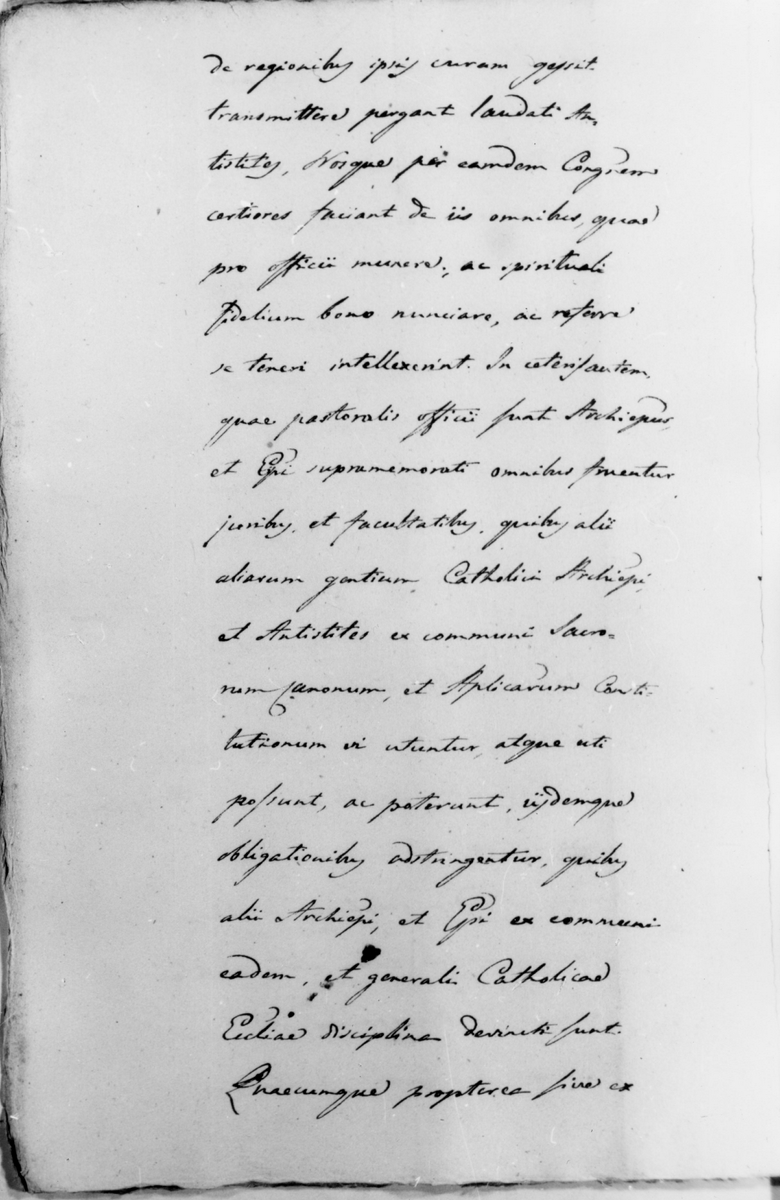 de regionibus ipsis curam gessit
transmittere pergant laudati An-
tistites, Nosque per eamdem Congnem
certiores faciant de iis omnibus, quae
pro officii munere, ac spirituali
fidelium bono nunciare, ac referre
se teneri intellexerint. In ceteris autem,
quae pastoralis officii sunt Archiepus,
et Epi supramemorati omnibus fruentur
juribus, et facultatibus, quibus alii
aliarum gentium Catholici Archiepi,
et Antistites ex communi Sacro=
rum Canonum, et Aplicarum Consti=
tutionum vi utuntur, atque uti
possunt, ac poterunt, iisdemque
obligationibus adstringentur, quibus
alii Archiepi, et Epi ex communi
eadem, et generali Catholicae
Eccliae disciplina devincti sunt.
Quaecumque propterea sive ex